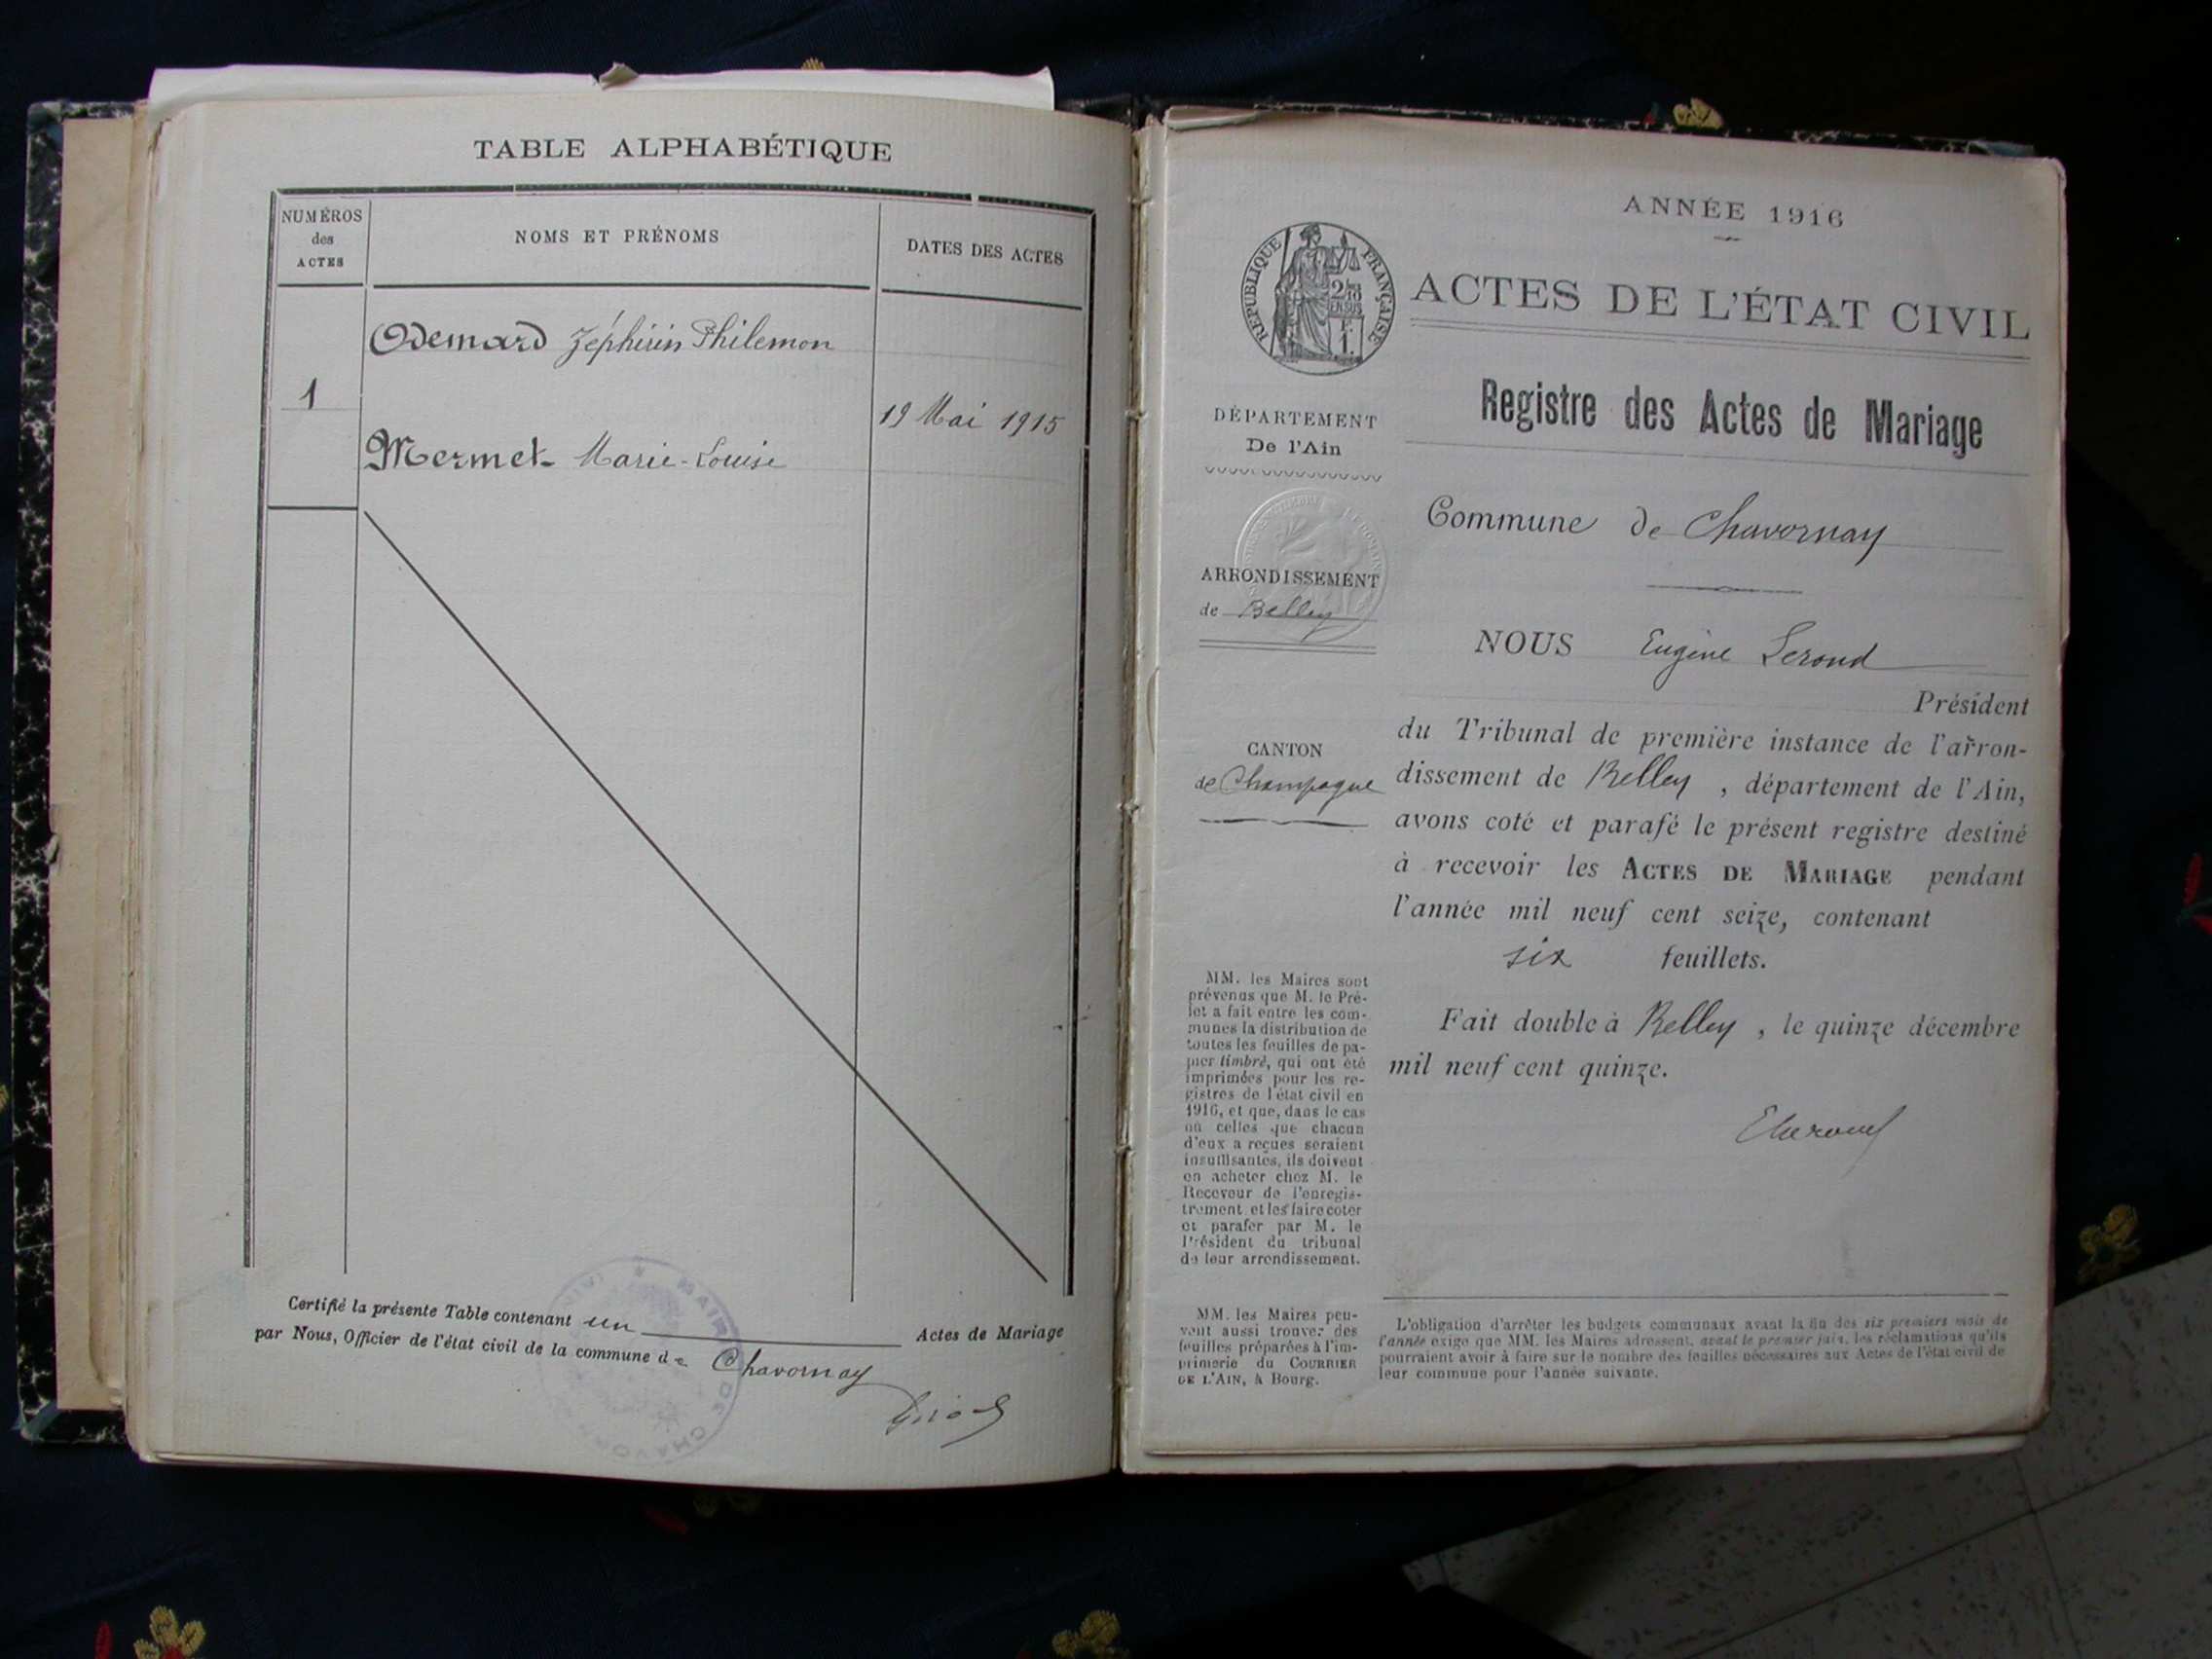 TABLE ALPHABÉTIQUE
NUMÉROS
des
ACTES
NOMS ET PRÉNOMS
DATES DES ACTES
Odemard Zéphirin Philemon
1
19 Mai 1915
Mermet Marie-Louise
Certifié la présente Table contenant un Actes de Mariage
par Nous, Officier de l'état civil de la commune de Chavornay
ANNÉE 1916
RÉPUBLIQUE FRANÇAISE
ACTES DE L'ÉTAT CIVIL
Registre des Actes de Mariage
DÉPARTEMENT
De l'Ain
Commune de Chavornay
ARRONDISSEMENT
de Belley
NOUS Eugène Lerond
Président
du Tribunal de première instance de l'arron-
CANTON
de Champagne
dissement de Belley , département de l'Ain,
avons coté et parafé le présent registre destiné
à recevoir les ACTES DE MARIAGE pendant
l'année mil neuf cent seize, contenant
six feuillets.
Fait double à Belley , le quinze décembre
mil neuf cent quinze.
MM. les Maires sont
prévenus que M. le Pré-
fet a fait entre les com-
munes la distribution de
toutes les feuilles de pa-
pier timbré, qui ont été
imprimées pour les re-
gistres de l'état civil en
1916, et que, dans le cas
où celles que chacun
d'eux a reçues seraient
insuffisantes, ils doivent
en acheter chez M. le
Receveur de l'enregis-
trement et les faire coter
et parafer par M. le
Président du tribunal
de leur arrondissement.
MM. les Maires peu-
vent aussi trouver des
feuilles préparées à l'im-
primerie du COURRIER
DE L'AIN, à Bourg.
L'obligation d'arrêter les budgets communaux avant la fin des six premiers mois de
l'année exige que MM. les Maires adressent, avant le premier juin, les réclamations qu'ils
pourraient avoir à faire sur le nombre des feuilles nécessaires aux Actes de l'état civil de
leur commune pour l'année suivante.